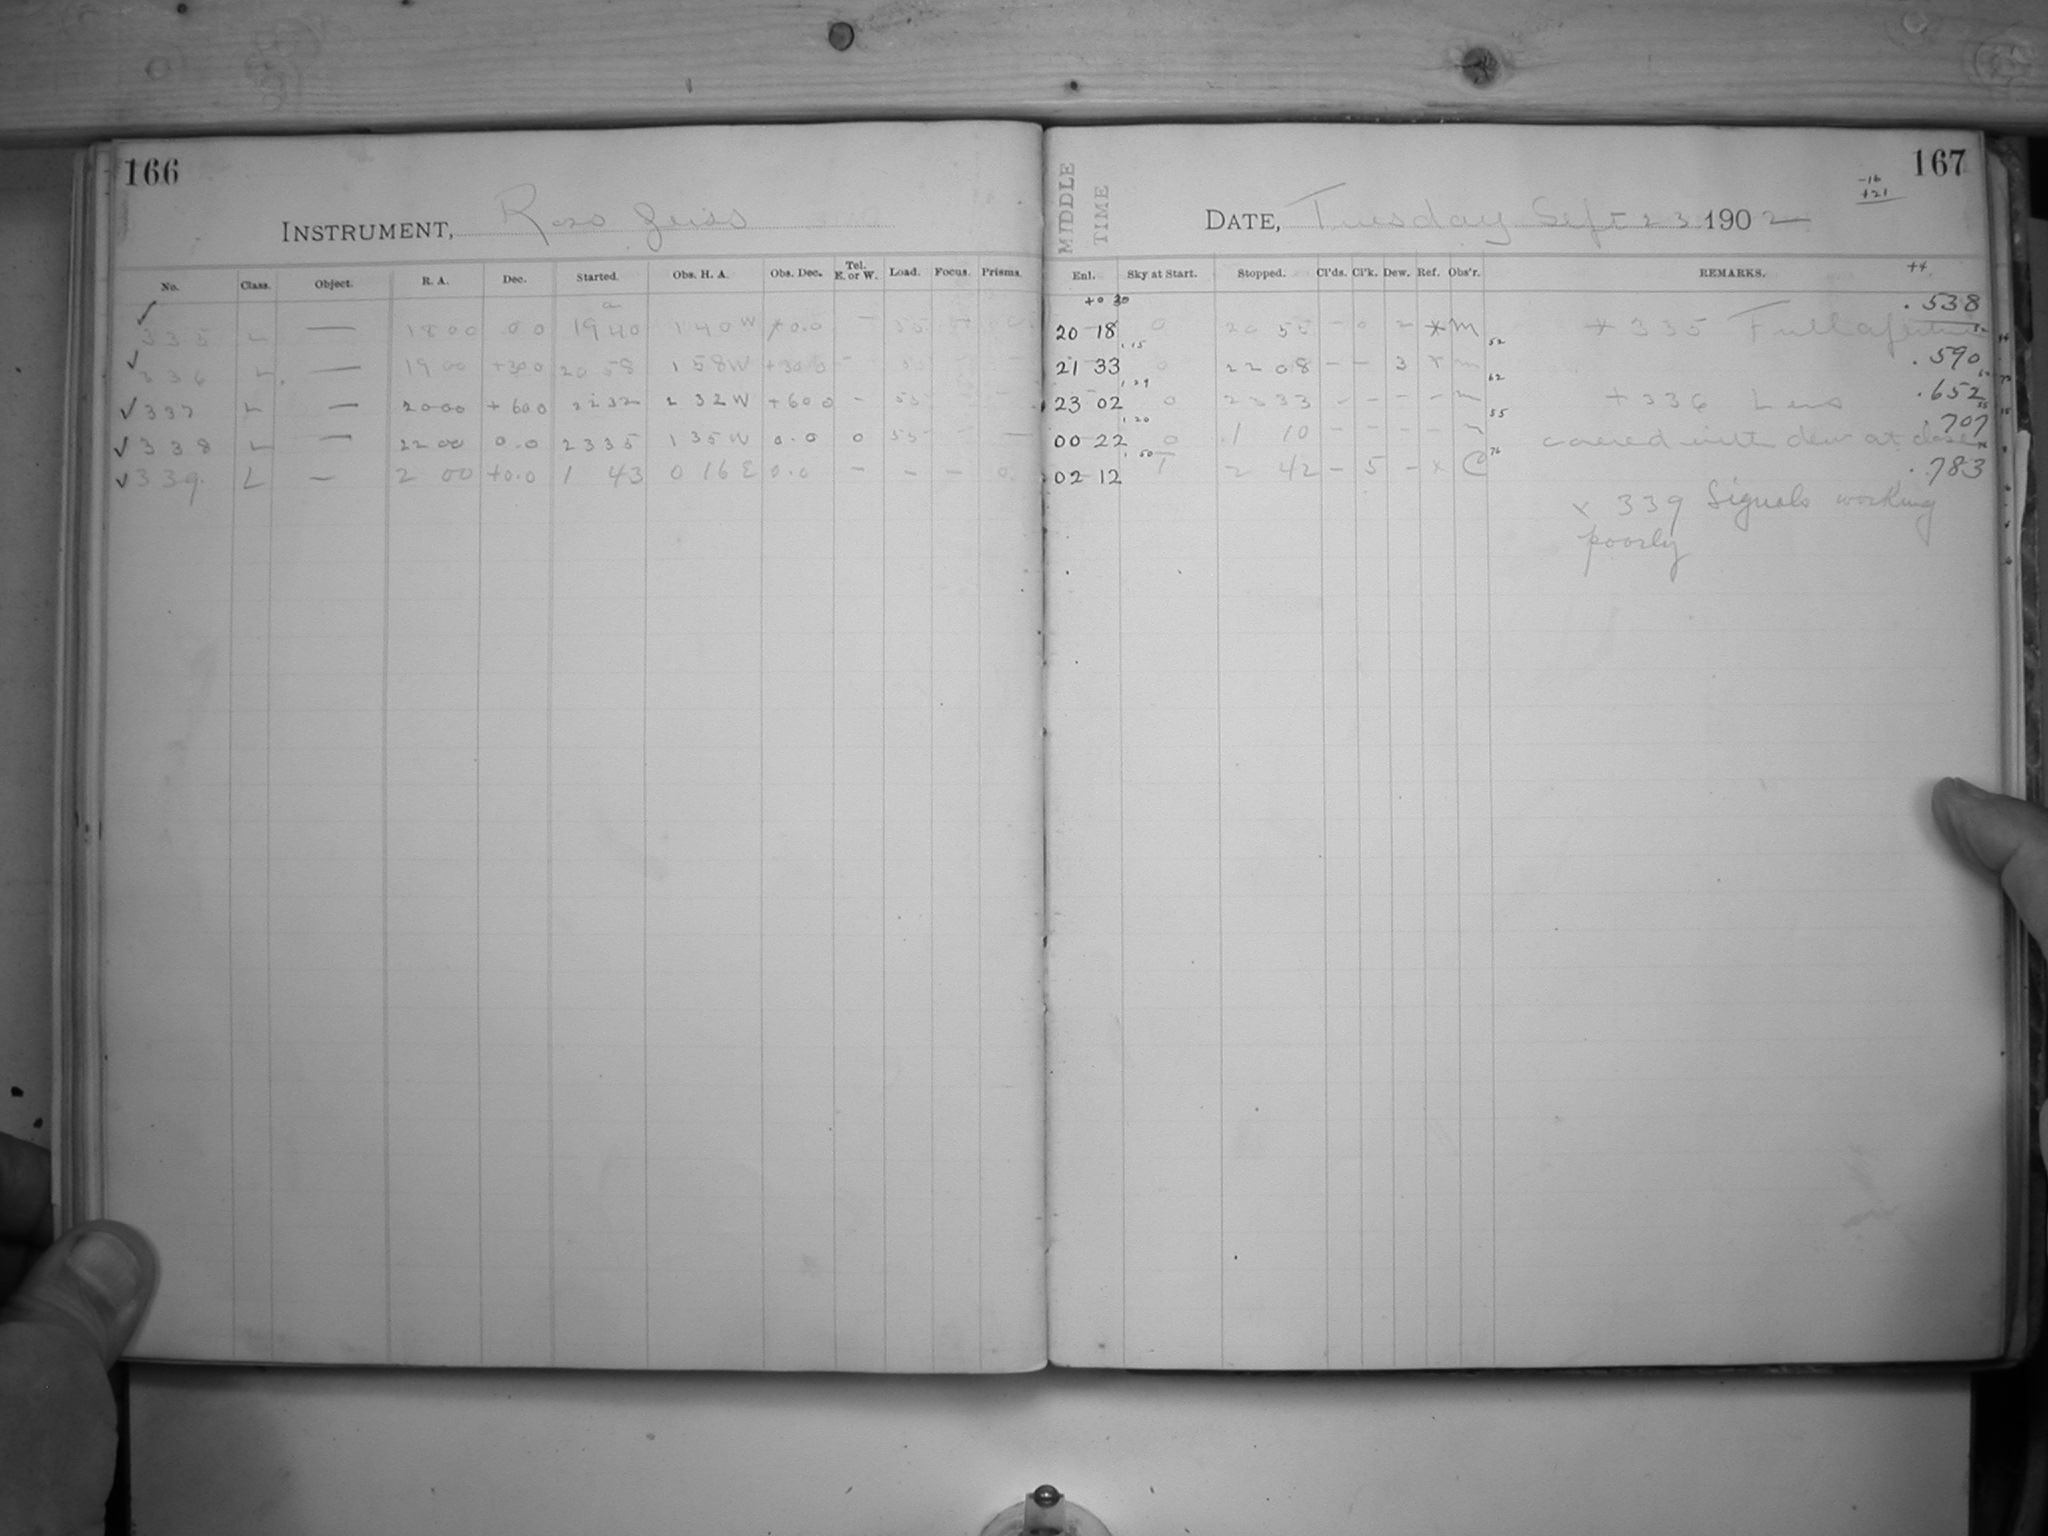 166
INSTRUMENT, Ross Zeiss
No. Class. Object. R. A. Dec. Started. Obs. H. A. Obs. Dec. Tel. E. or W. Load. Focus. Prisms.
✓ 335 L — 18 00 0 0 19 40 1 40 W +0.0 — 55 —
✓ 336 L — 19 00 +30 0 20 58 1 58 W +30 0 — 55 — —
✓ 337 L — 20 00 +60 0 22 32 2 32 W +60 0 — 55 — —
✓ 338 L — 22 00 0.0 23 35 1 35 W 0.0 0 55 — —
✓ 339. L — 2 00 +0.0 1 43 0 16 E 0.0 — — — 0.
167
-16
+21
MIDDLE TIME
DATE, Tuesday Sept 23 1902
Enl. Sky at Start. Stopped. Cl'ds. Cl'k. Dew. Ref. Obs'r. REMARKS. ++
+0 30
.538
20 18 0 20 55 — 0 2 * m * 335 Full aperture
1.15 52
.590
21 33 0 22 08 — — 3 x m
1.29 62
.652
23 02 0 23 33 — — — — m + 336 Lens
1.20 55
.707
00 22 0 1 10 — — — — covered with dew at close
1.50 76
.783
02 12 1 2 42 — 5 — x C
x 339 Signals working
poorly